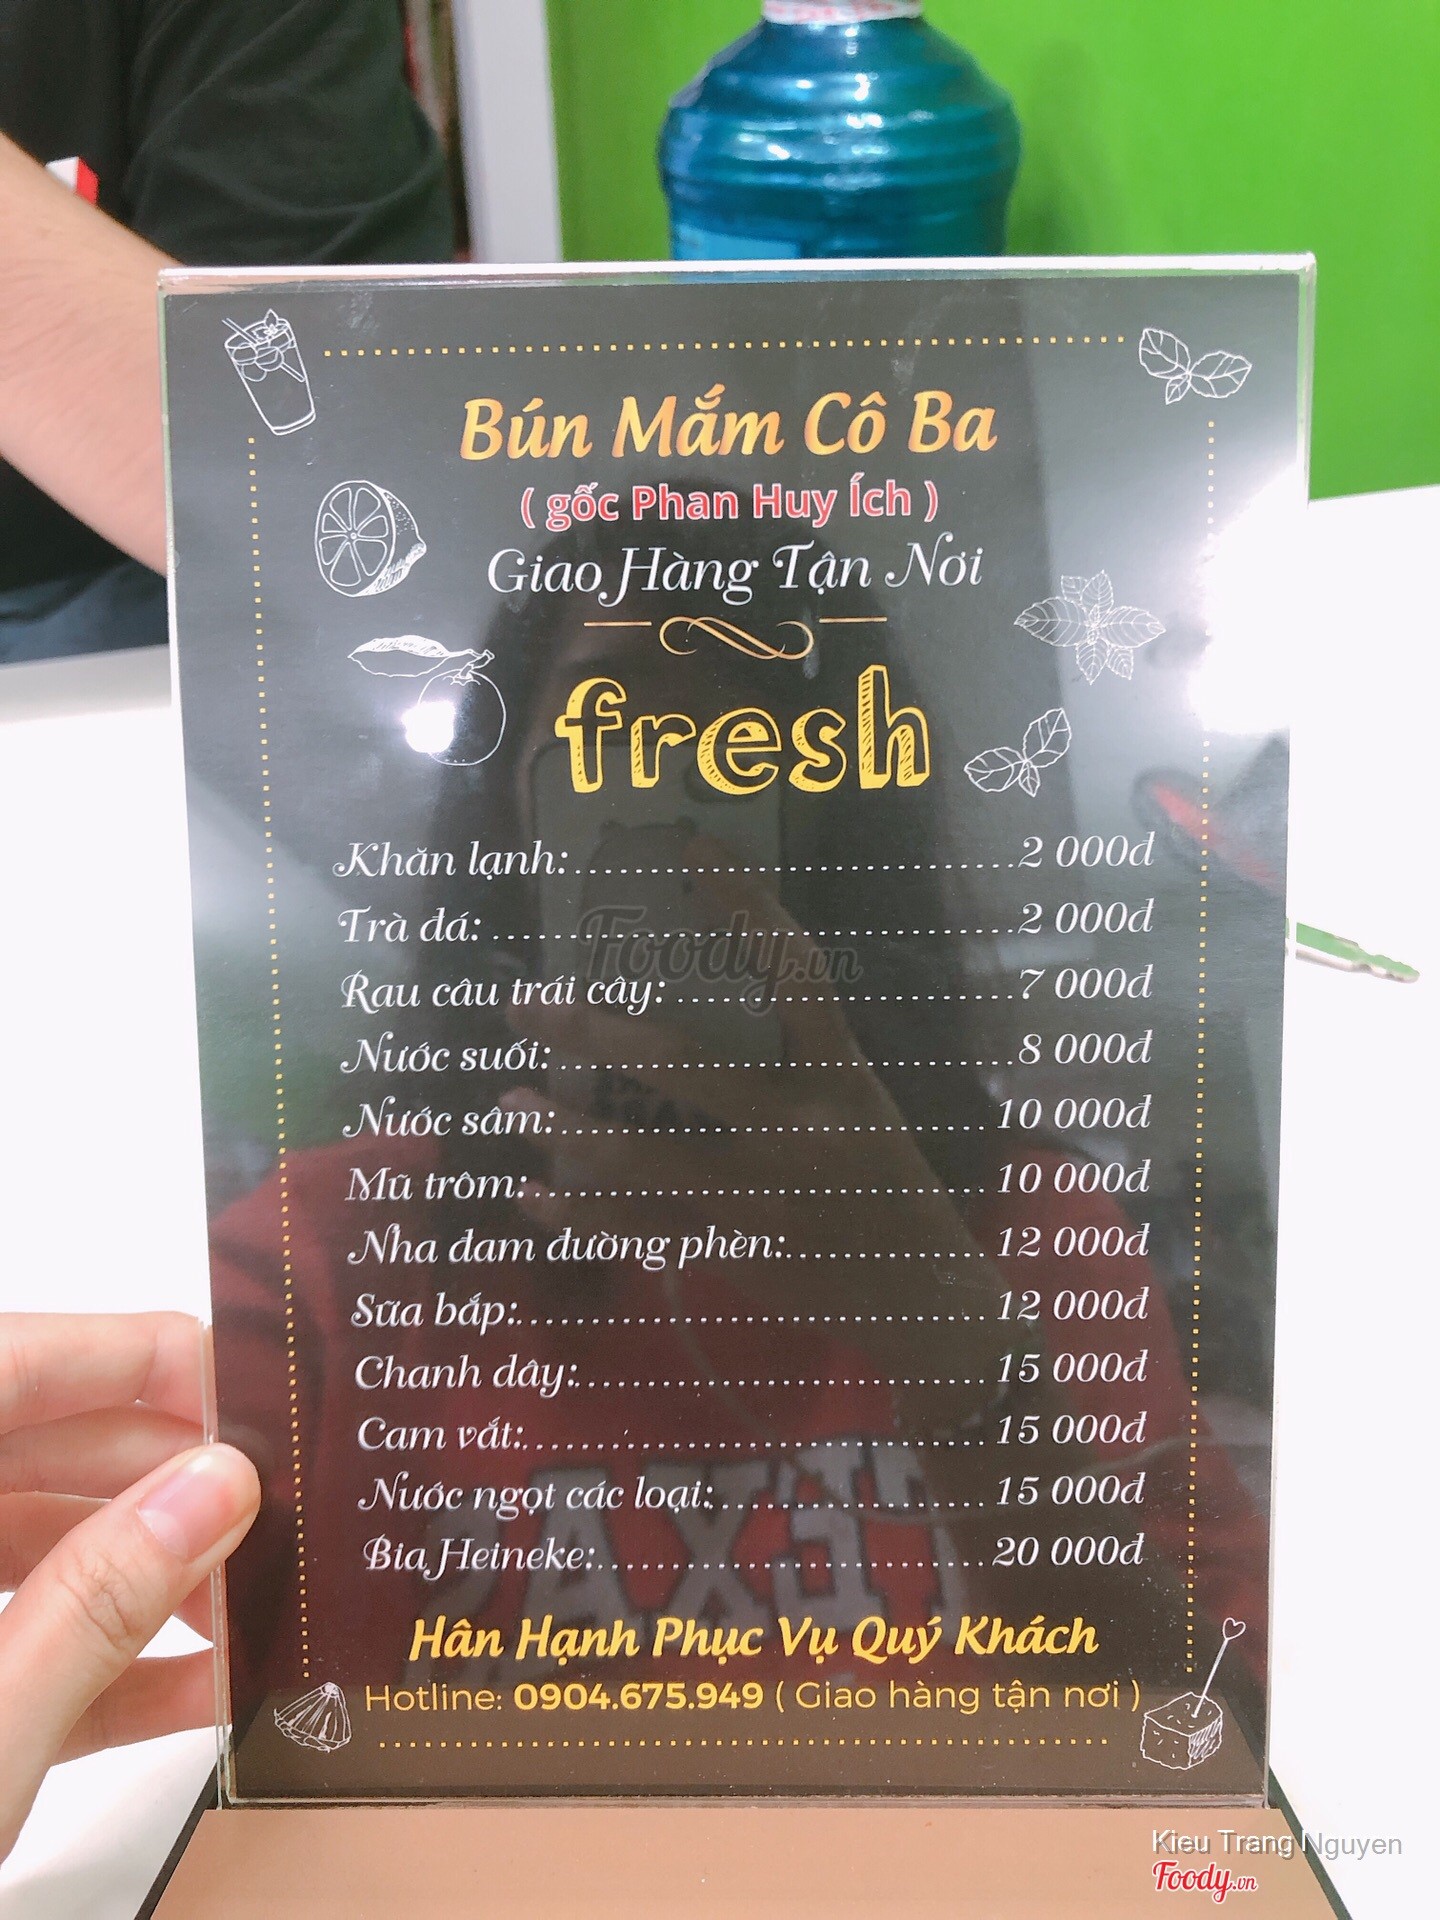 Bún Mắm Cô Ba
( gốc Phan Huy Ích )
Giao Hàng Tận Nơi
fresh
Khăn lạnh:..............................2 000đ
Trà đá: ..............................2 000đ
Rau câu trái cây: ....................7 000đ
Nước suối:..............................8 000đ
Nước sâm:........................... 10 000đ
Mũ trôm:............................ 10 000đ
Nha đam đường phèn:............. 12 000đ
Sữa bắp:............................. 12 000đ
Chanh dây:......................... 15 000đ
Cam vắt:............................ 15 000đ
Nước ngọt các loại:................. 15 000đ
Bia Heineke:........................20 000đ
Hân Hạnh Phục Vụ Quý Khách
Hotline: 0904.675.949 ( Giao hàng tận nơi )
Foody.vn
Kieu Trang Nguyen
Foody.vn